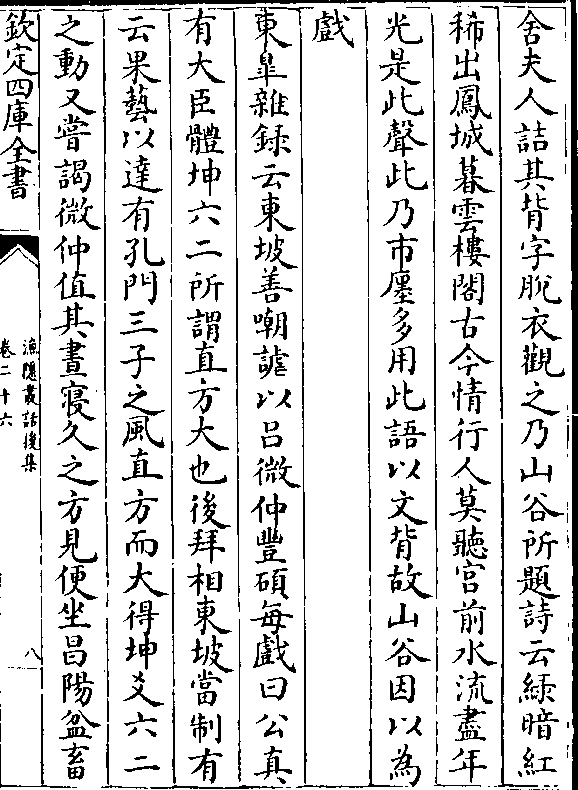 舍夫人詰其背字脫衣觀之乃山谷所題詩云緑暗紅
稀出鳳城暮雲樓閣古今情行人莫聽宫前水流盡年
光是此聲此乃市廛多用此語以文背故山谷因以為
戲
東臯雜録云東坡善嘲謔以吕微仲豐碩每戲曰公真
有大臣體坤六二所謂直方大也後拜相東坡當制有
云果藝以達有孔門三子之風直方而大得坤爻六二
之動又嘗謁微仲值其晝寢久之方見便坐昌陽盆畜
欽定四庫全書
漁隱叢話後集
卷二十六
八